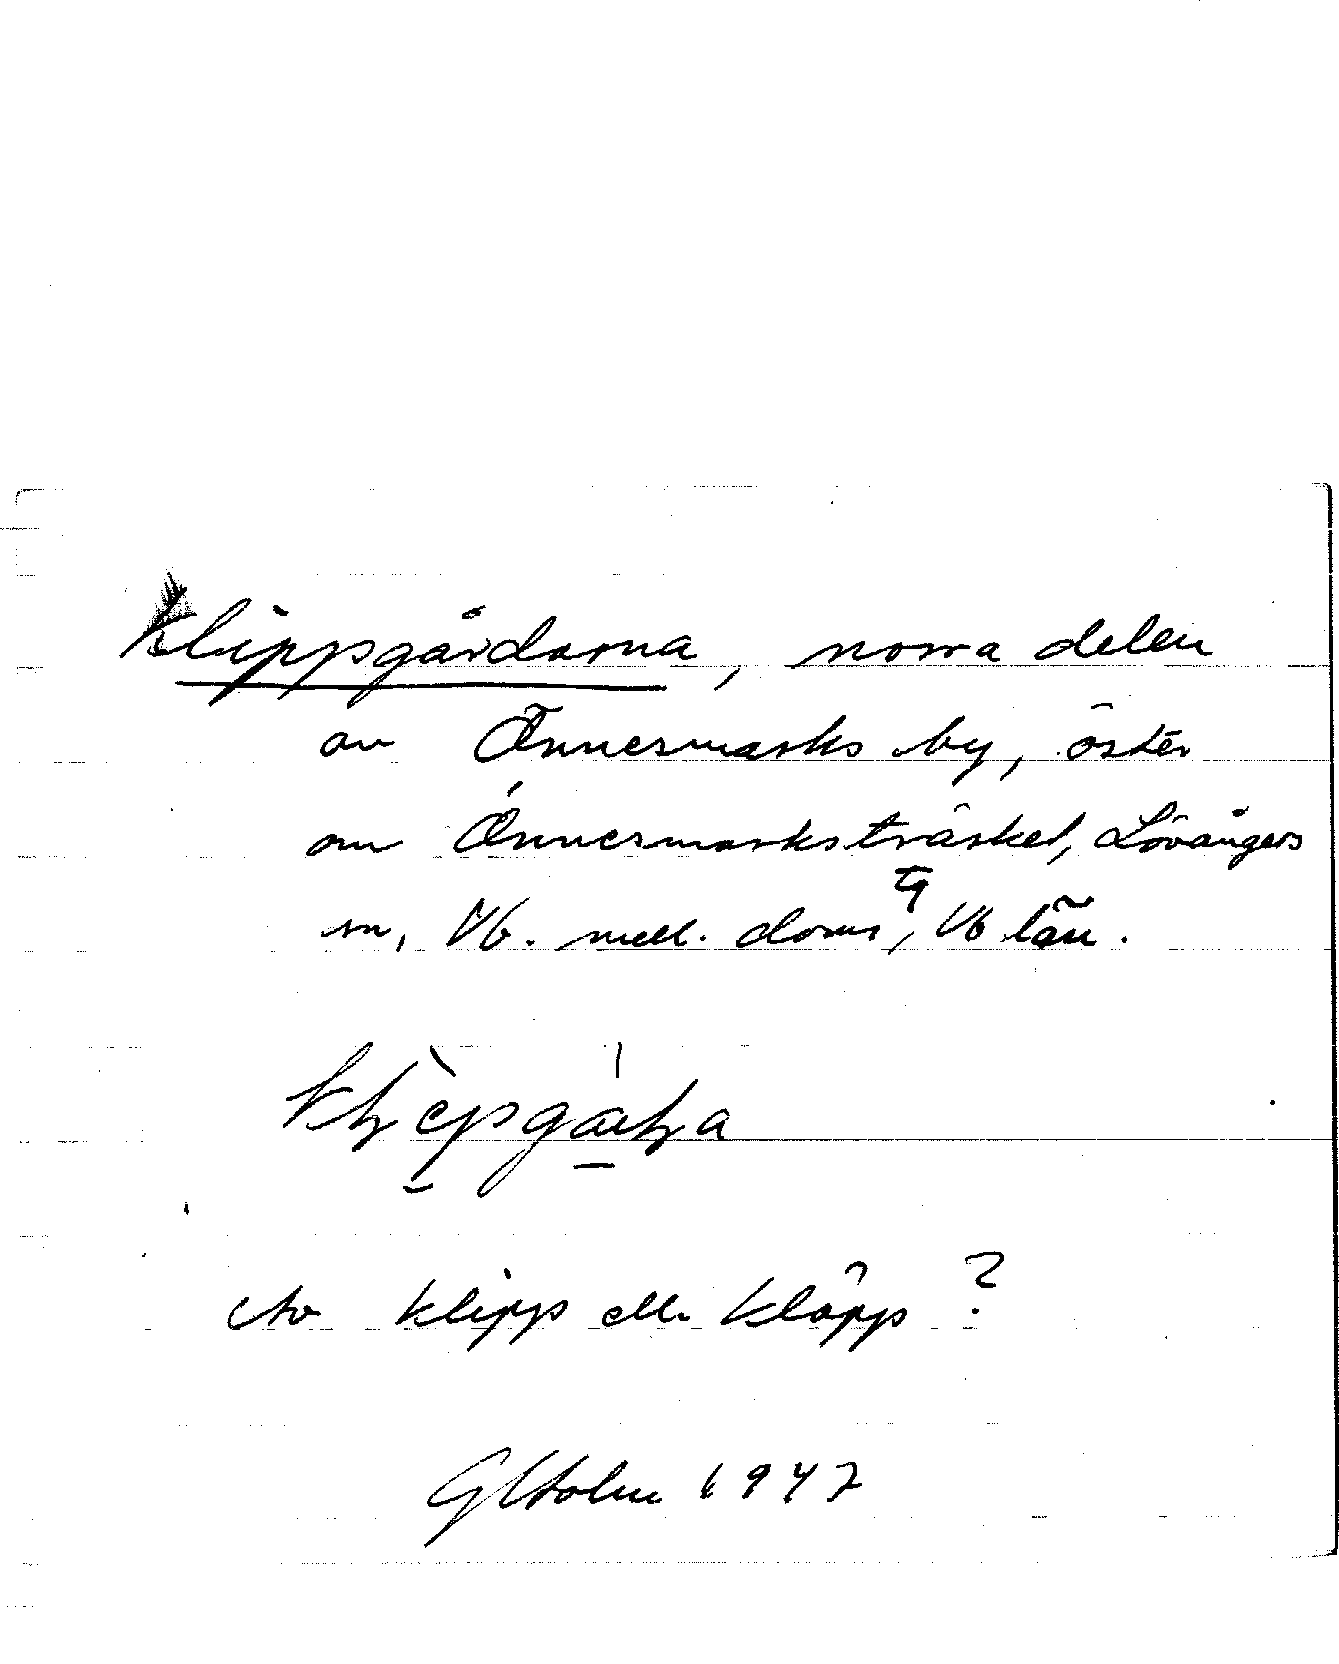 Klippgårdarna, norra delen
av Önnermarks by, öster
om Önnermarksträsket, Lövångers
sn, Vb. mell. doms tg, Vb län.
Av klipp ell. kläpp ?
GHolm 1947